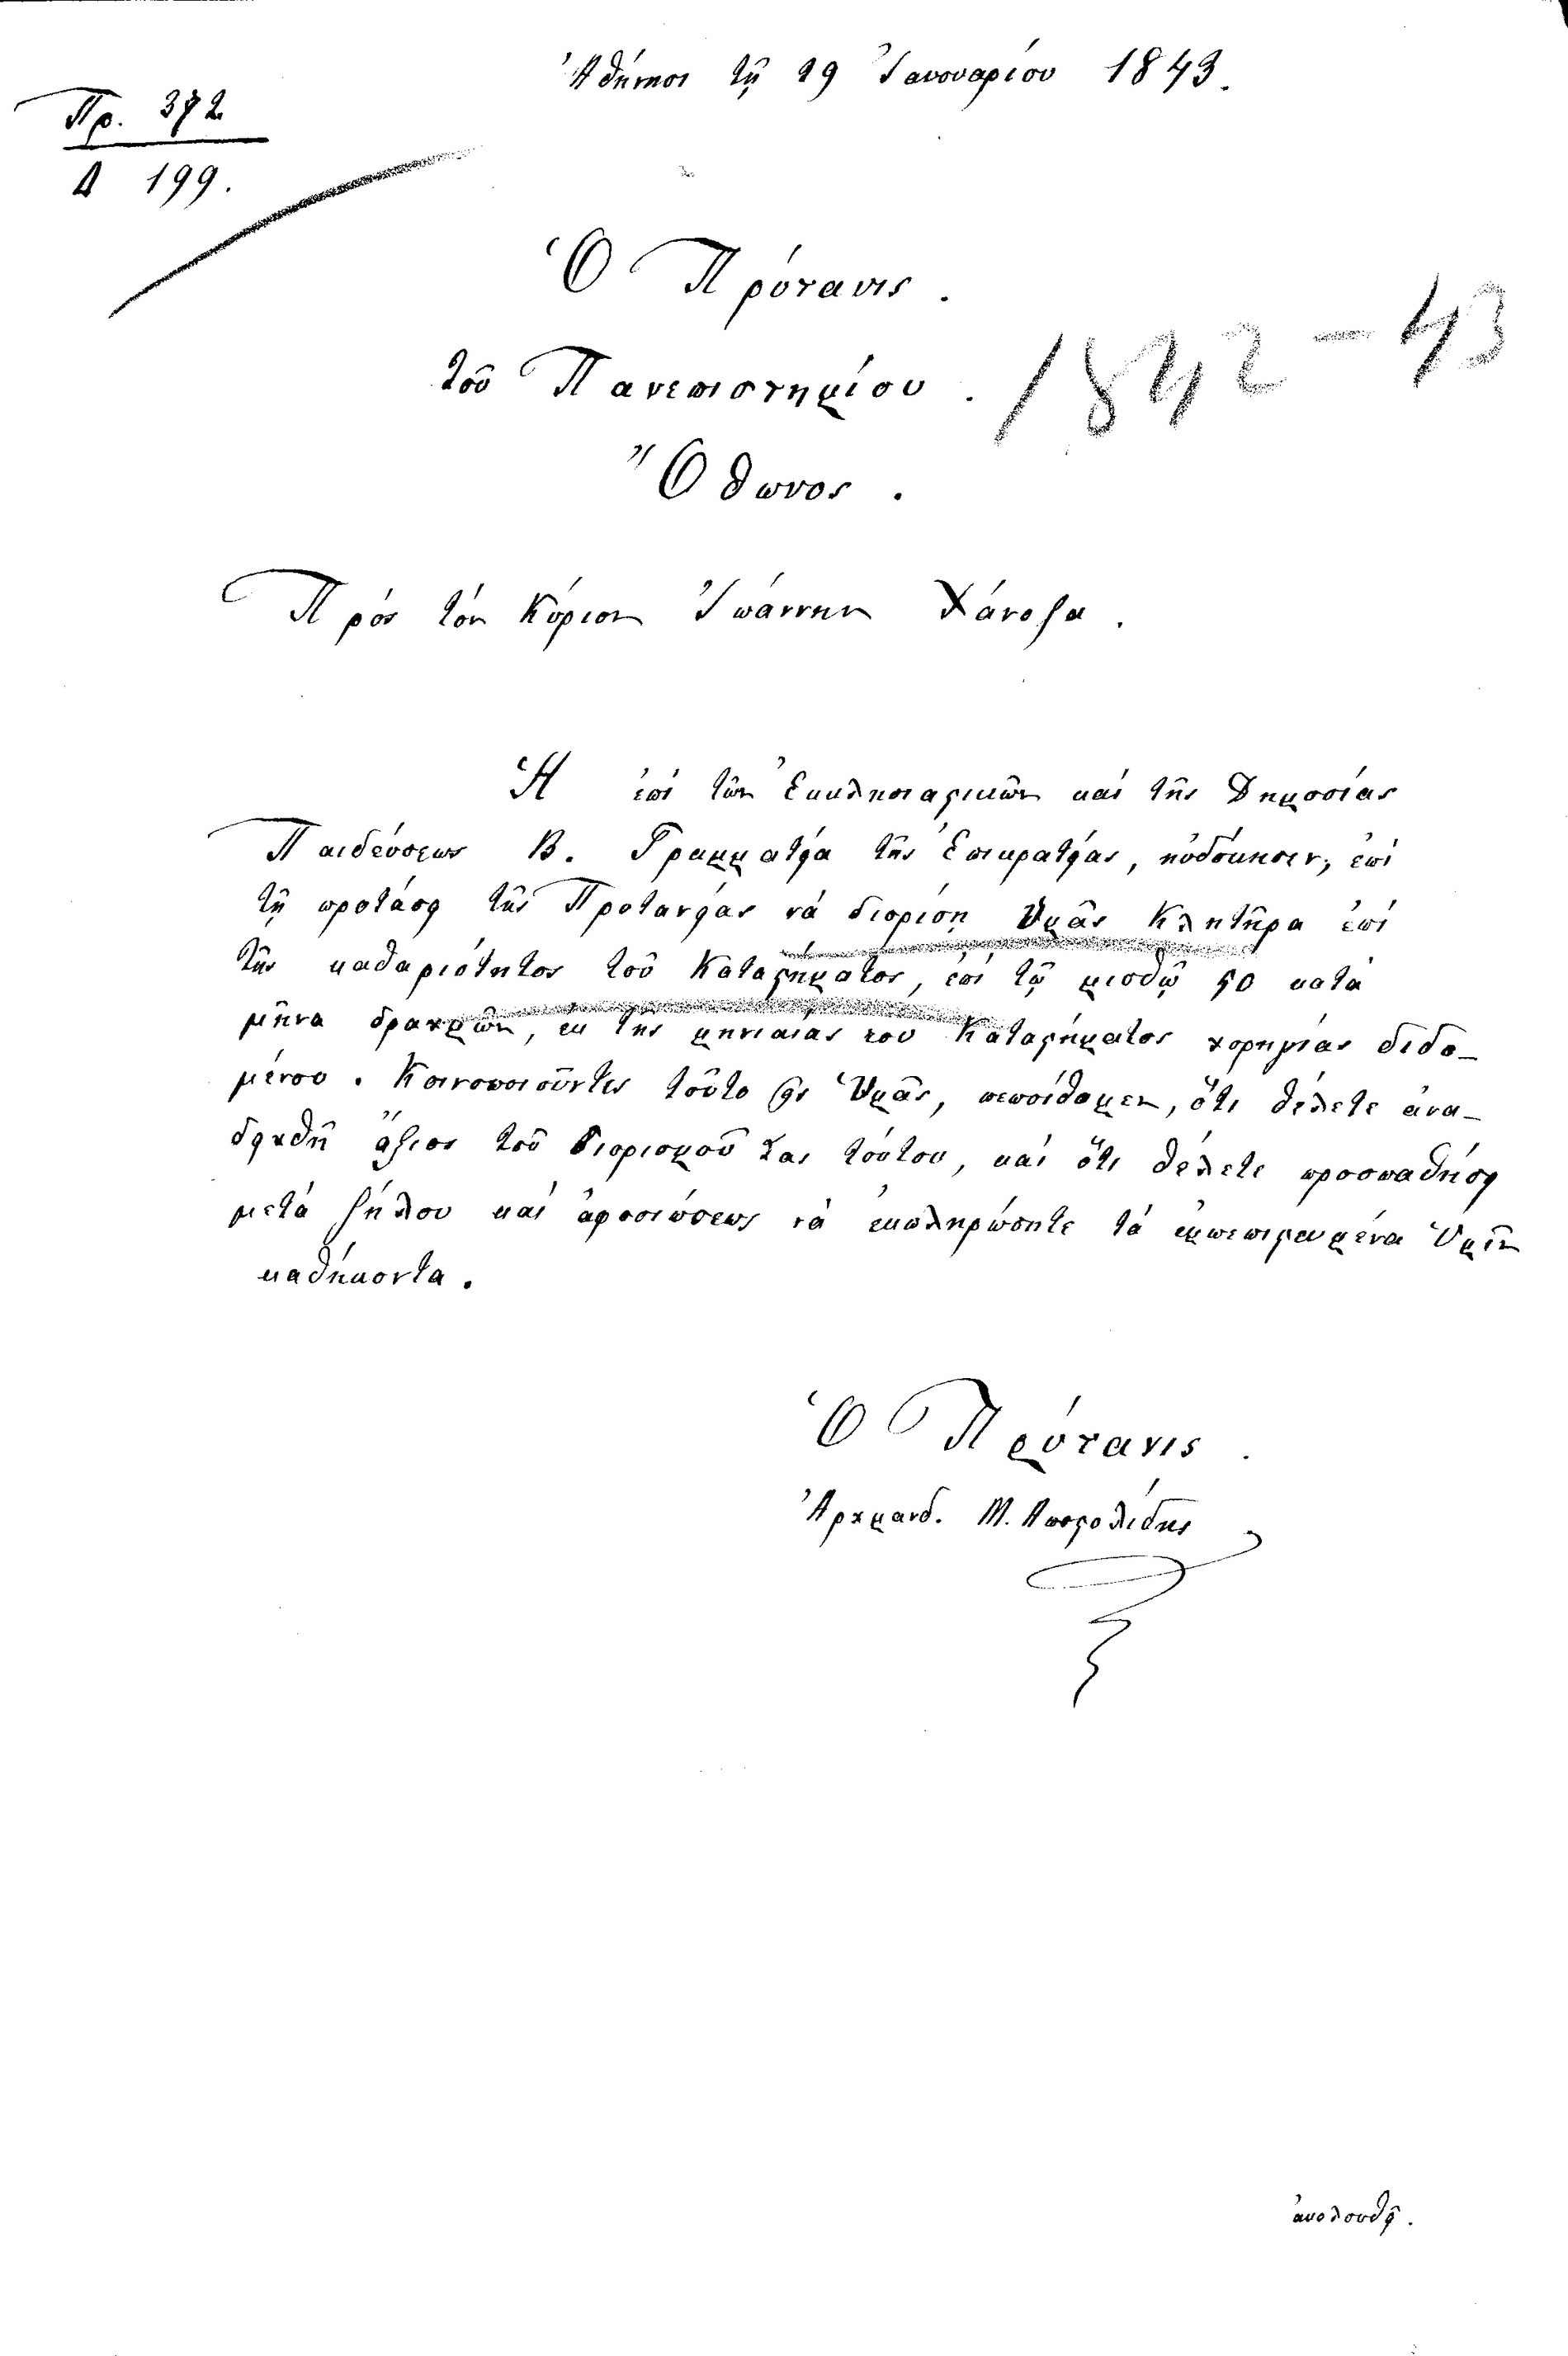 Ἀθῆναι τῇ 29 Ἰανουαρίου 1843.
Πρ. 372
Δ 199.
Ὁ Πρύτανις.
τοῦ Πανεπιστημίου.
1842-43
Ὄθωνος.
Πρός τόν Κύριον Ἰωάννην
Ἡ ἐπί τῶν Ἐκκλησιαστικῶν καί τῆς Δημοσίας
Παιδεύσεως Β. Γραμματεία τῆς Ἐπικρατείας, ηὐδόκησεν, ἐπί
τῇ προτάσει τῆς Πρυτανείας νά διορίσῃ Ὑμᾶς Κλητῆρα ἐπί
τῆς καθαριότητος τοῦ Καταστήματος, ἐπί τῷ μισθῷ 50 κατά
μῆνα δραχμῶν, ἐκ τῆς μηνιαίας του Καταστήματος χορηγίας διδο-
μένου. Κοινοποιοῦντες τοῦτο εἰς Ὑμᾶς, πεποίθαμεν, ὅτι θέλετε ἀνα-
δειχθῆ ἄξιος τοῦ διορισμοῦ Σας τούτου, καί ὅτι θέλετε προσπαθήσει
μετά ζήλου καί ἀφοσιώσεως νά ἐκπληρώσητε τά ἐμπεπιστευμένα Ὑμῖν
καθήκοντα.
Ὁ Πρύτανις.
Ἀρχμανδ. Μ. Αποστολίδης
ἀκολουθεῖ.